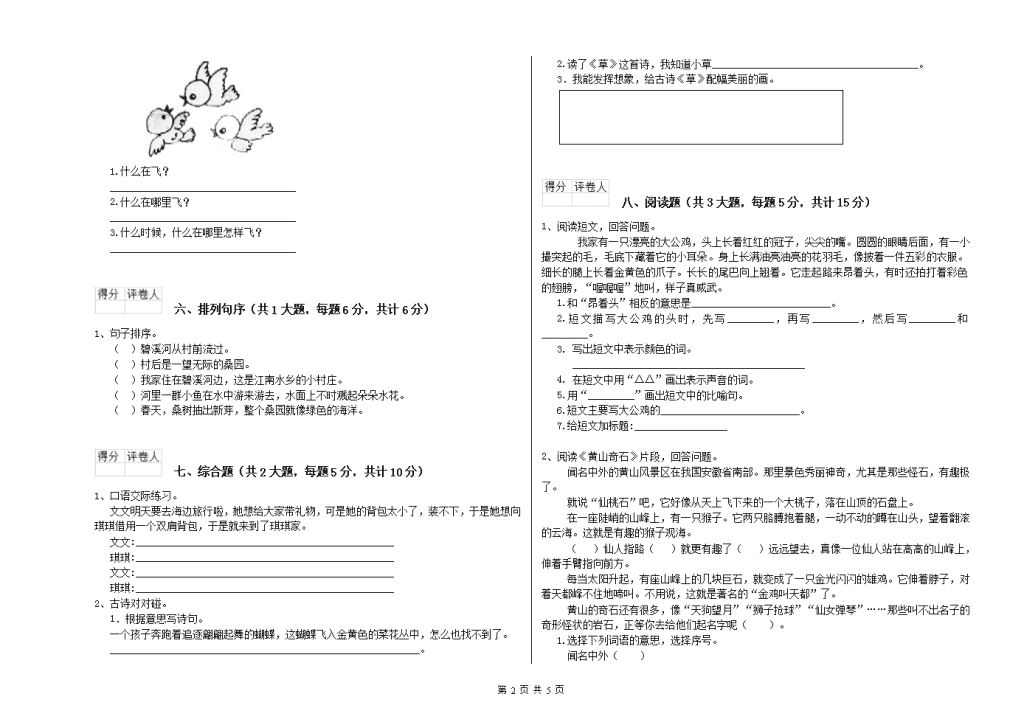 1.什么在飞？
2.什么在哪里飞？
3.什么时候，什么在哪里怎样飞？
得分 评卷人
六、排列句序（共1大题，每题6分，共计6分）
1、句子排序。
（ ）碧溪河从村前流过。
（ ）村后是一望无际的桑园。
（ ）我家住在碧溪河边，这是江南水乡的小村庄。
（ ）河里一群小鱼在水中游来游去，水面上不时溅起朵朵水花。
（ ）春天，桑树抽出新芽，整个桑园就像绿色的海洋。
得分 评卷人
七、综合题（共2大题，每题5分，共计10分）
1、口语交际练习。
文文明天要去海边旅行啦，她想给大家带礼物，可是她的背包太小了，装不下，于是她想向
琪琪借用一个双肩背包，于是就来到了琪琪家。
文文:
琪琪:
文文:
琪琪:
2、古诗对对碰。
1．根据意思写诗句。
一个孩子奔跑着追逐翩翩起舞的蝴蝶，这蝴蝶飞入金黄色的菜花丛中，怎么也找不到了。
。
2.读了《草》这首诗，我知道小草。
3．我能发挥想象，给古诗《草》配幅美丽的画。
得分 评卷人
八、阅读题（共3大题，每题5分，共计15分）
1、阅读短文，回答问题。
我家有一只漂亮的大公鸡，头上长着红红的冠子，尖尖的嘴。圆圆的眼睛后面，有一小
撮突起的毛，毛底下藏着它的小耳朵。身上长满油亮油亮的花羽毛，像披着一件五彩的衣服。
细长的腿上长着金黄色的爪子。长长的尾巴向上翘着。它走起路来昂着头，有时还拍打着彩色
的翅膀，“喔喔喔”地叫，样子真威武。
1.和“昂着头”相反的意思是。
2.短文描写大公鸡的头时，先写，再写，然后写和
。
3. 写出短文中表示颜色的词。
4. 在短文中用“△△”画出表示声音的词。
5.用“”画出短文中的比喻句。
6.短文主要写大公鸡的。
7.给短文加标题:
2、阅读《黄山奇石》片段，回答问题。
闻名中外的黄山风景区在我国安徽省南部。那里景色秀丽神奇，尤其是那些怪石，有趣极
了。
就说“仙桃石”吧，它好像从天上飞下来的一个大桃子，落在山顶的石盘上。
在一座陡峭的山峰上，有一只猴子。它两只胳膊抱着腿，一动不动的蹲在山头，望着翻滚
的云海。这就是有趣的猴子观海。
（ ）仙人指路（ ）就更有趣了（ ）远远望去，真像一位仙人站在高高的山峰上，
伸着手臂指向前方。
每当太阳升起，有座山峰上的几块巨石，就变成了一只金光闪闪的雄鸡。它伸着脖子，对
着天都峰不住地啼叫。不用说，这就是著名的“金鸡叫天都”了。
黄山的奇石还有很多，像“天狗望月”“狮子抢球”“仙女弹琴”……那些叫不出名子的
奇形怪状的岩石，正等你去给他们起名字呢（ ）。
1.选择下列词语的意思，选择序号。
闻名中外（ ）
第 2 页 共 5 页